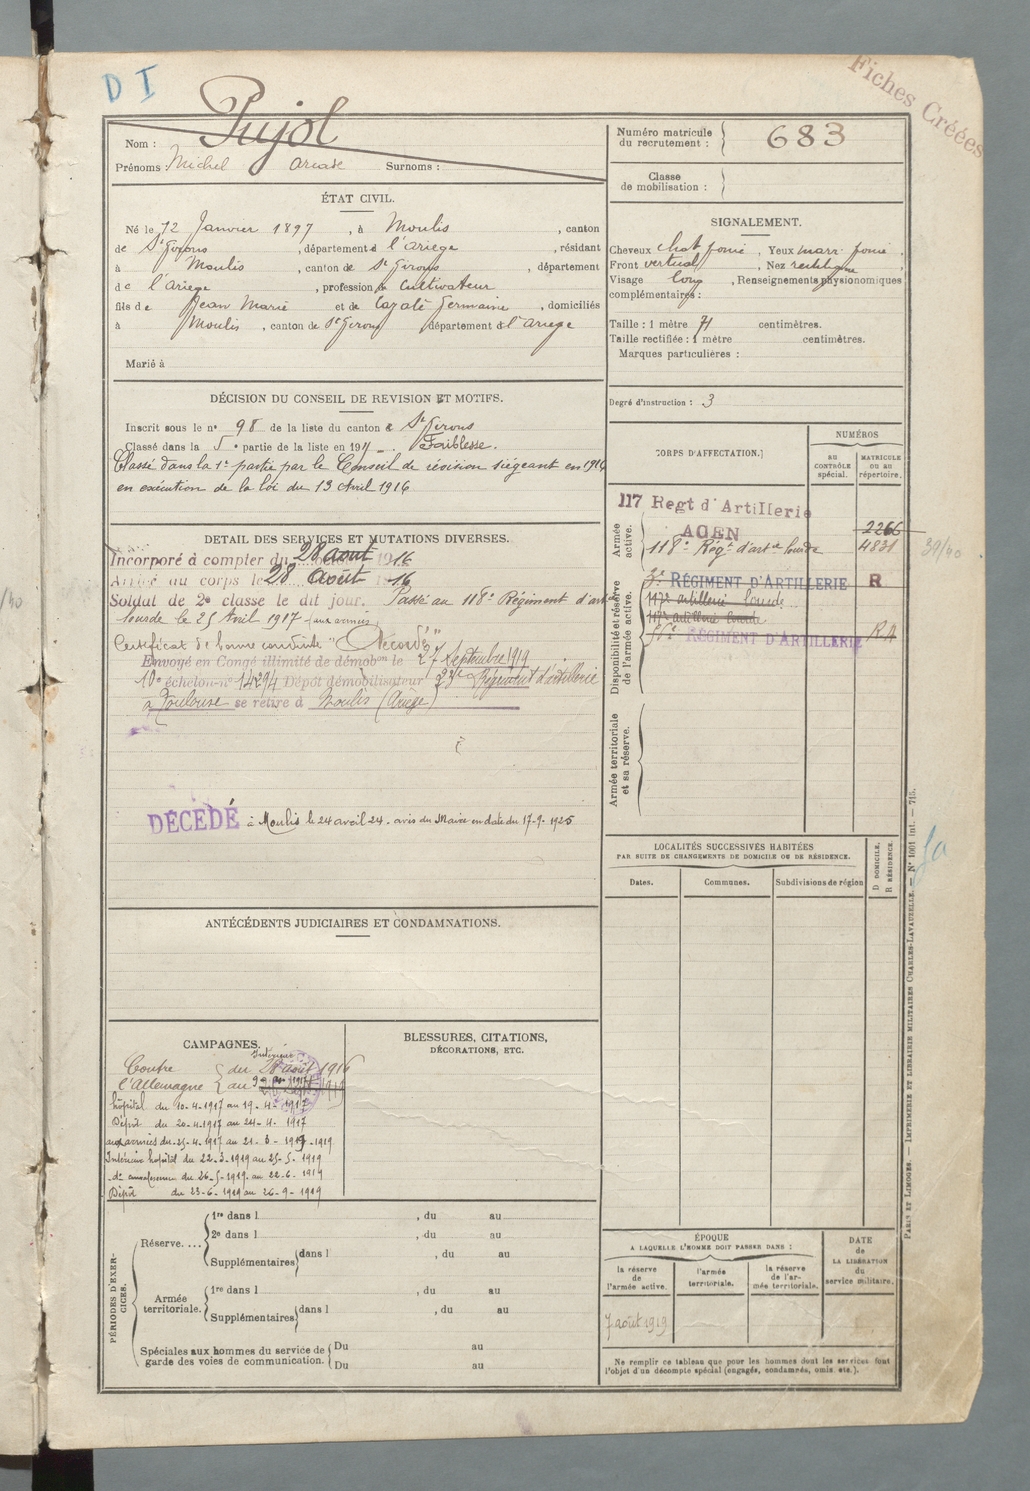 D I
Fiches Créées
Pujol
Nom :
Prénoms : Michel Surnoms :
Numéro matricule du recrutement : 683
Classe de mobilisation :
ÉTAT CIVIL.
Né le 12 Janvier 1897, à Moulis, canton
de St Girons, département d l'Ariège, résidant
à Moulis, canton de St Girons, département
de l'Ariège, profession de Cultivateur
fils de Jean Marie et de Cazalé Germaine, domiciliés
à Moulis, canton de St Girons département de l'Ariège
Marié à
SIGNALEMENT.
Cheveux chat foncé, Yeux marr. foncé,
Front vertical, Nez rectiligne,
Visage long, Renseignements physionomiques
complémentaires :
Taille : 1 mètre 71 centimètres.
Taille rectifiée : 1 mètre centimètres.
Marques particulières :
Degré d'instruction : 3
DÉCISION DU CONSEIL DE REVISION ET MOTIFS.
Inscrit sous le n° 98 de la liste du canton de St Girons
Classé dans la 5e partie de la liste en 191 Faiblesse.
Classé dans la 1e partie par le Conseil de révision siégeant en 1916
en exécution de la loi du 13 Avril 1916
DETAIL DES SERVICES ET MUTATIONS DIVERSES.
Incorporé à compter du 28 août 1916
Arrivé au corps le 28 Août 1916
Soldat de 2e classe le dit jour. Passé au 118e Régiment d'art
lourde le 25 Avril 1917 (aux armées)
Certificat de bonne conduite "Accordé"
Envoyé en Congé illimité de démobon le 27 Septembre 1919
10e échelon n° 14294 Dépôt démobilisateur 23e Régiment d'artillerie
à Toulouse se retire à Moulis (Ariège)
DÉCÉDÉ à Moulis le 24 avril 24 - avis du Maire en date du 17-9-1925
CORPS D'AFFECTATION.
NUMÉROS
AU CONTRÔLE spécial.
MATRICULE OU AU répertoire.
Armée active.
117 Regt d'Artillerie
AGEN 2266
118e Régt d'art lourde 4831
39/40
Disponibilité et réserve de l'armée active.
3e RÉGIMENT D'ARTILLERIE R
117e artillerie lourde
117e artillerie lourde
RÉGIMENT D'ARTILLERIE RA
Armée territoriale et sa réserve.
LOCALITÉS SUCCESSIVES HABITÉES
PAR SUITE DE CHANGEMENTS DE DOMICILE OU DE RÉSIDENCE.
Dates.
Communes.
Subdivisions de région
D DOMICILE.
R RÉSIDENCE.
ANTÉCÉDENTS JUDICIAIRES ET CONDAMNATIONS.
CAMPAGNES.
Intérieur
Contre du 28 août 1916
l'Allemagne au 9
hôpital du 10-4-1917 au 19-4-1917
Dépôt du 20-4-1917 au 24-4-1917
aux armées du 25-4-1917 au 21-3-1919
Intérieur hôpital du 22-3-1919 au 25-5-1919
du 26-5-1919 au 22-6-1919
Dépôt du 23-6-1919 au 26-9-1919
BLESSURES, CITATIONS,
DÉCORATIONS, ETC.
PÉRIODES D'EXERCICES.
Réserve....
1re dans l , du au
2e dans l , du au
Supplémentaires dans l , du au
Armée territoriale.
1re dans l , du au
Supplémentaires dans l , du au
Spéciales aux hommes du service de garde des voies de communication.
Du au
Du au
ÉPOQUE
A LAQUELLE L'HOMME DOIT PASSER DANS :
la réserve de l'armée active.
l'armée territoriale.
la réserve de l'armée territoriale.
DATE de LA LIBÉRATION du service militaire.
7 août 1919
Ne remplir ce tableau que pour les hommes dont les services font
l'objet d'un décompte spécial (engagés, condamnés, omis etc.).
PARIS ET LIMOGES. — IMPRIMERIE ET LIBRAIRIE MILITAIRES CHARLES-LAVAUZELLE. — N° 1001 int. — 715.